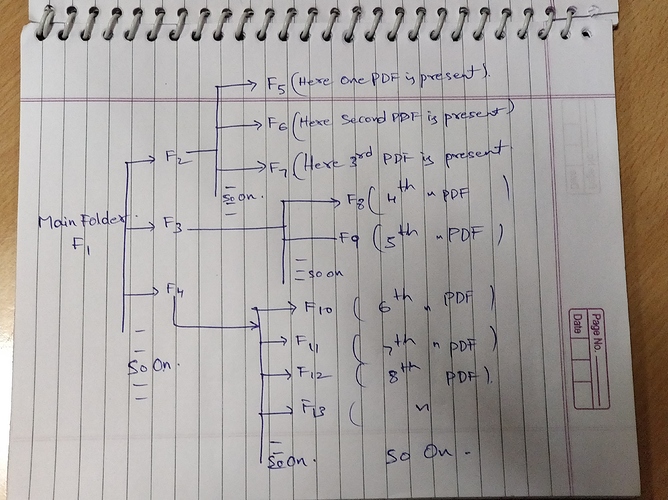 F5 (Here One PDF is present).
F6 (Here Second PDF is present)
F2
F7 (Here 3rd PDF is present.
So On.
F8 ( 4th " PDF )
Main Folder.
F1
F3
F9 ( 5th " PDF )
So on
F4
F10 ( 6th " PDF )
F11 ( 7th " PDF )
So On.
F12 ( 8th PDF ).
F13 ( "
So On.
So On -
Page No.
Date